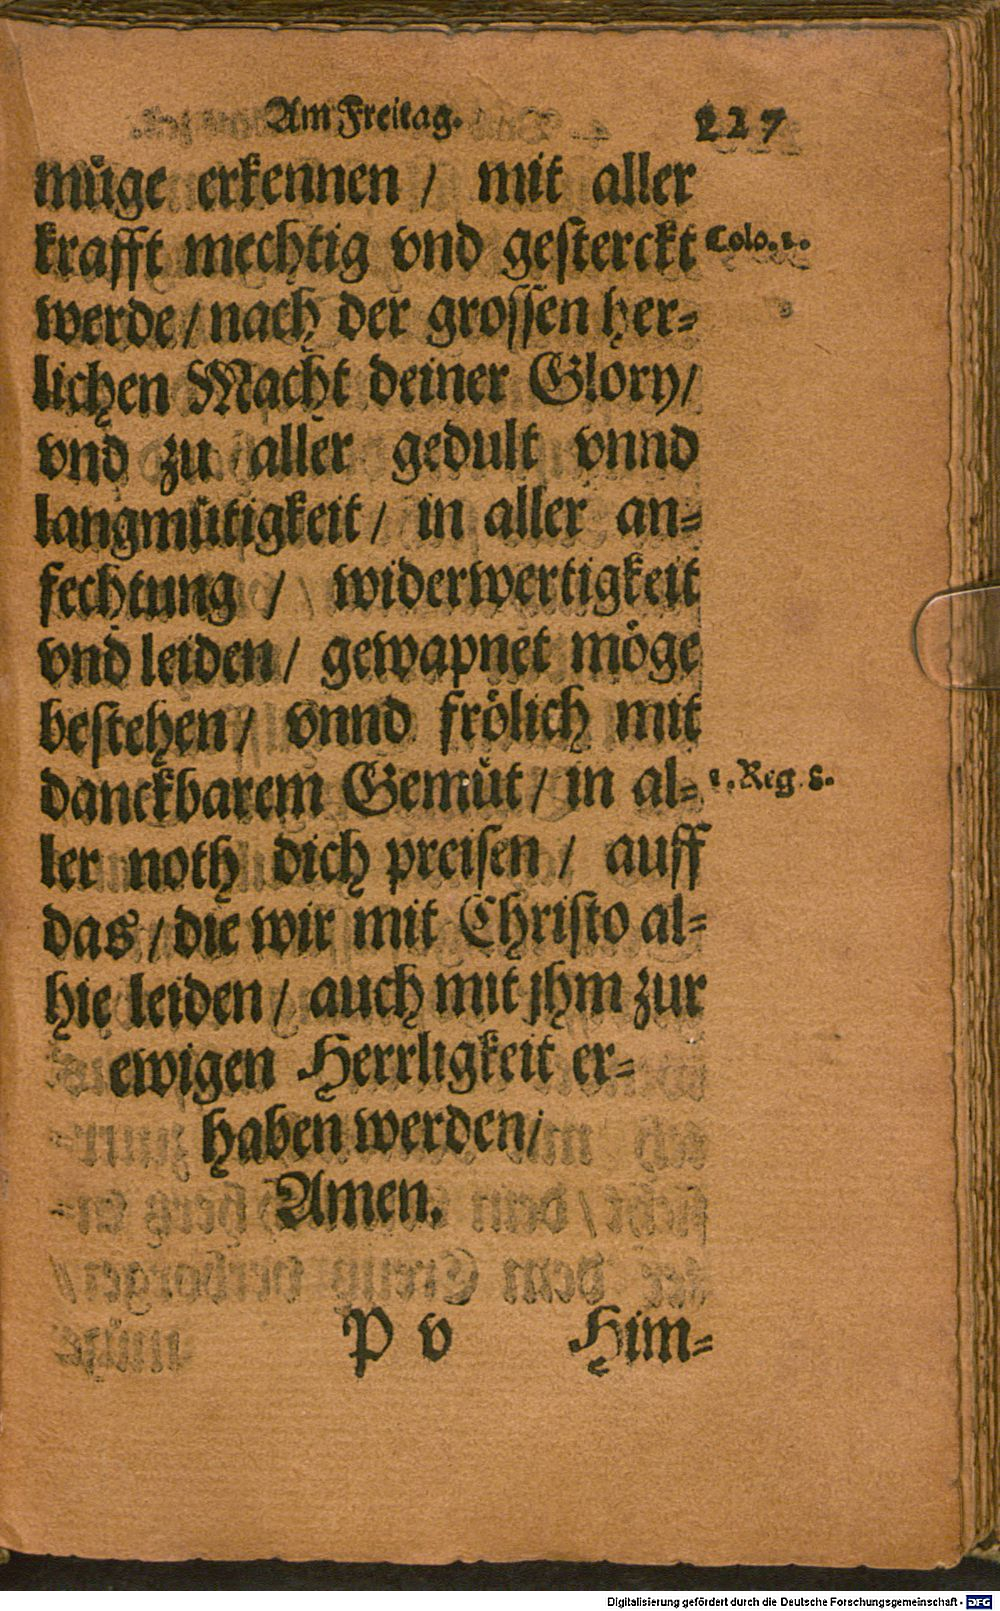 Am Freitag. 227
müge erkennen / mit aller
krafft mechtig vnd gesterckt Colo. 1.
werde / nach der grossen her-
lichen Macht deiner Glory /
vnd zu aller gedult vnnd
langmütigkeit / in aller an-
fechtung / widerwertigkeit
vnd leiden / gewapnet möge
bestehen / vnnd frölich mit
danckbarem Gemüt / in al- 1. Reg. 8.
ler noth dich preisen / auff
das / die wir mit Christo al-
hie leiden / auch mit jhm zur
ewigen Herrligkeit er-
haben werden /
Amen.
P v Him-
Digitalisierung gefördert durch die Deutsche Forschungsgemeinschaft - DFG